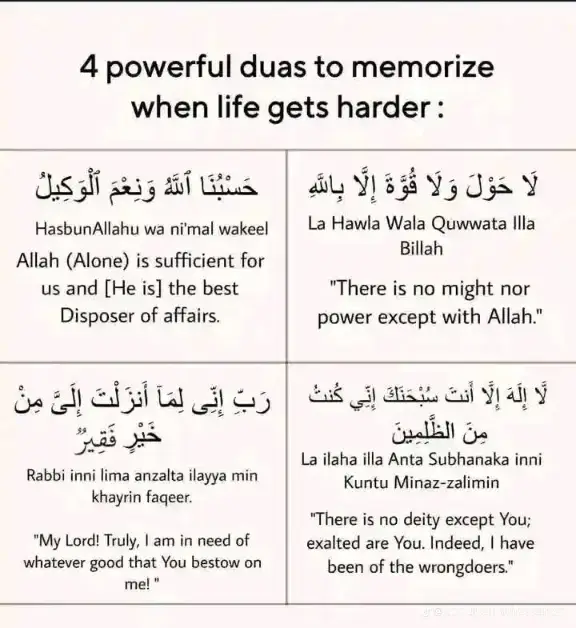 4 powerful duas to memorize
when life gets harder :
حَسْبُنَا ٱللَّهُ وَنِعْمَ ٱلْوَكِيلُ
HasbunAllahu wa ni'mal wakeel
Allah (Alone) is sufficient for
us and [He is] the best
Disposer of affairs.
لَا حَوْلَ وَلَا قُوَّةَ إِلَّا بِاللَّهِ
La Hawla Wala Quwwata Illa
Billah
"There is no might nor
power except with Allah."
رَبِّ إِنِّى لِمَآ أَنزَلْتَ إِلَىَّ مِنْ
خَيْرٍ فَقِيرٌ
Rabbi inni lima anzalta ilayya min
khayrin faqeer.
"My Lord! Truly, I am in need of
whatever good that You bestow on
me! "
لَّا إِلَهَ إِلَّا أَنتَ سُبْحَنَكَ إِنِّي كُنتُ
مِنَ الظَّلِمِينَ
La ilaha illa Anta Subhanaka inni
Kuntu Minaz-zalimin
"There is no deity except You;
exalted are You. Indeed, I have
been of the wrongdoers."